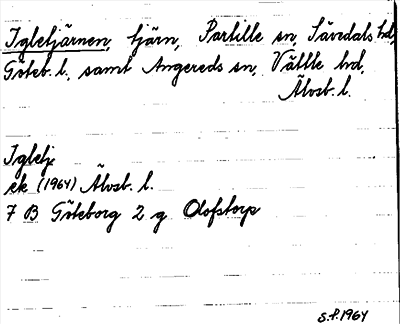 Igletjärnen, tjärn, Partille sn, Sävedals hd,
Göteb. l., samt Angereds sn, Vättle hd,
Älvsb. l.
Igletj.
ek (1964) Älvsb. l.
7 B Göteborg 2 g Olofstorp
S.P. 1964